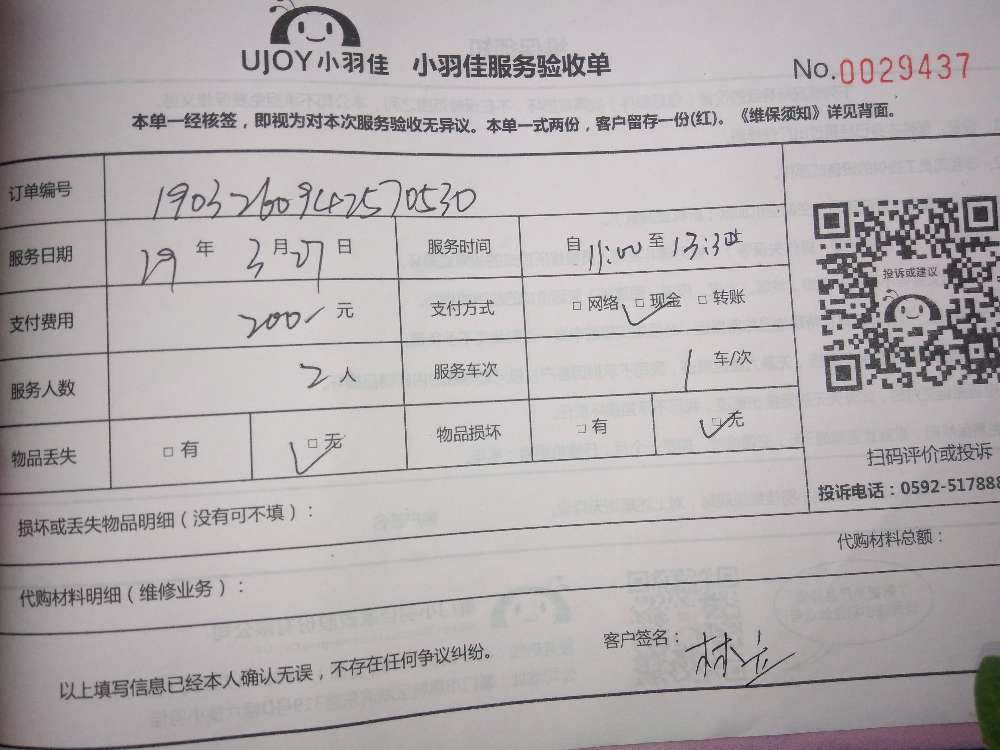 UJOY小羽佳 小羽佳服务验收单 No.0029437
本单一经核签，即视为对本次服务验收无异议。本单一式两份，客户留存一份(红)。《维保须知》详见背面。
订单编号 1903260942570530
服务日期 19 年 3 月 27 日 服务时间 自 11:00 至 13:30
支付费用 200 元 支付方式 □ 网络 □ 现金 □ 转账
服务人数 2 人 服务车次 1 车/次
物品丢失 □ 有 □ 无 物品损坏 □ 有 □ 无
投诉或建议
扫码评价或投诉
投诉电话：0592-517888
损坏或丢失物品明细（没有可不填）：
代购材料总额：
代购材料明细（维修业务）：
客户签名： 林
以上填写信息已经本人确认无误，不存在任何争议纠纷。